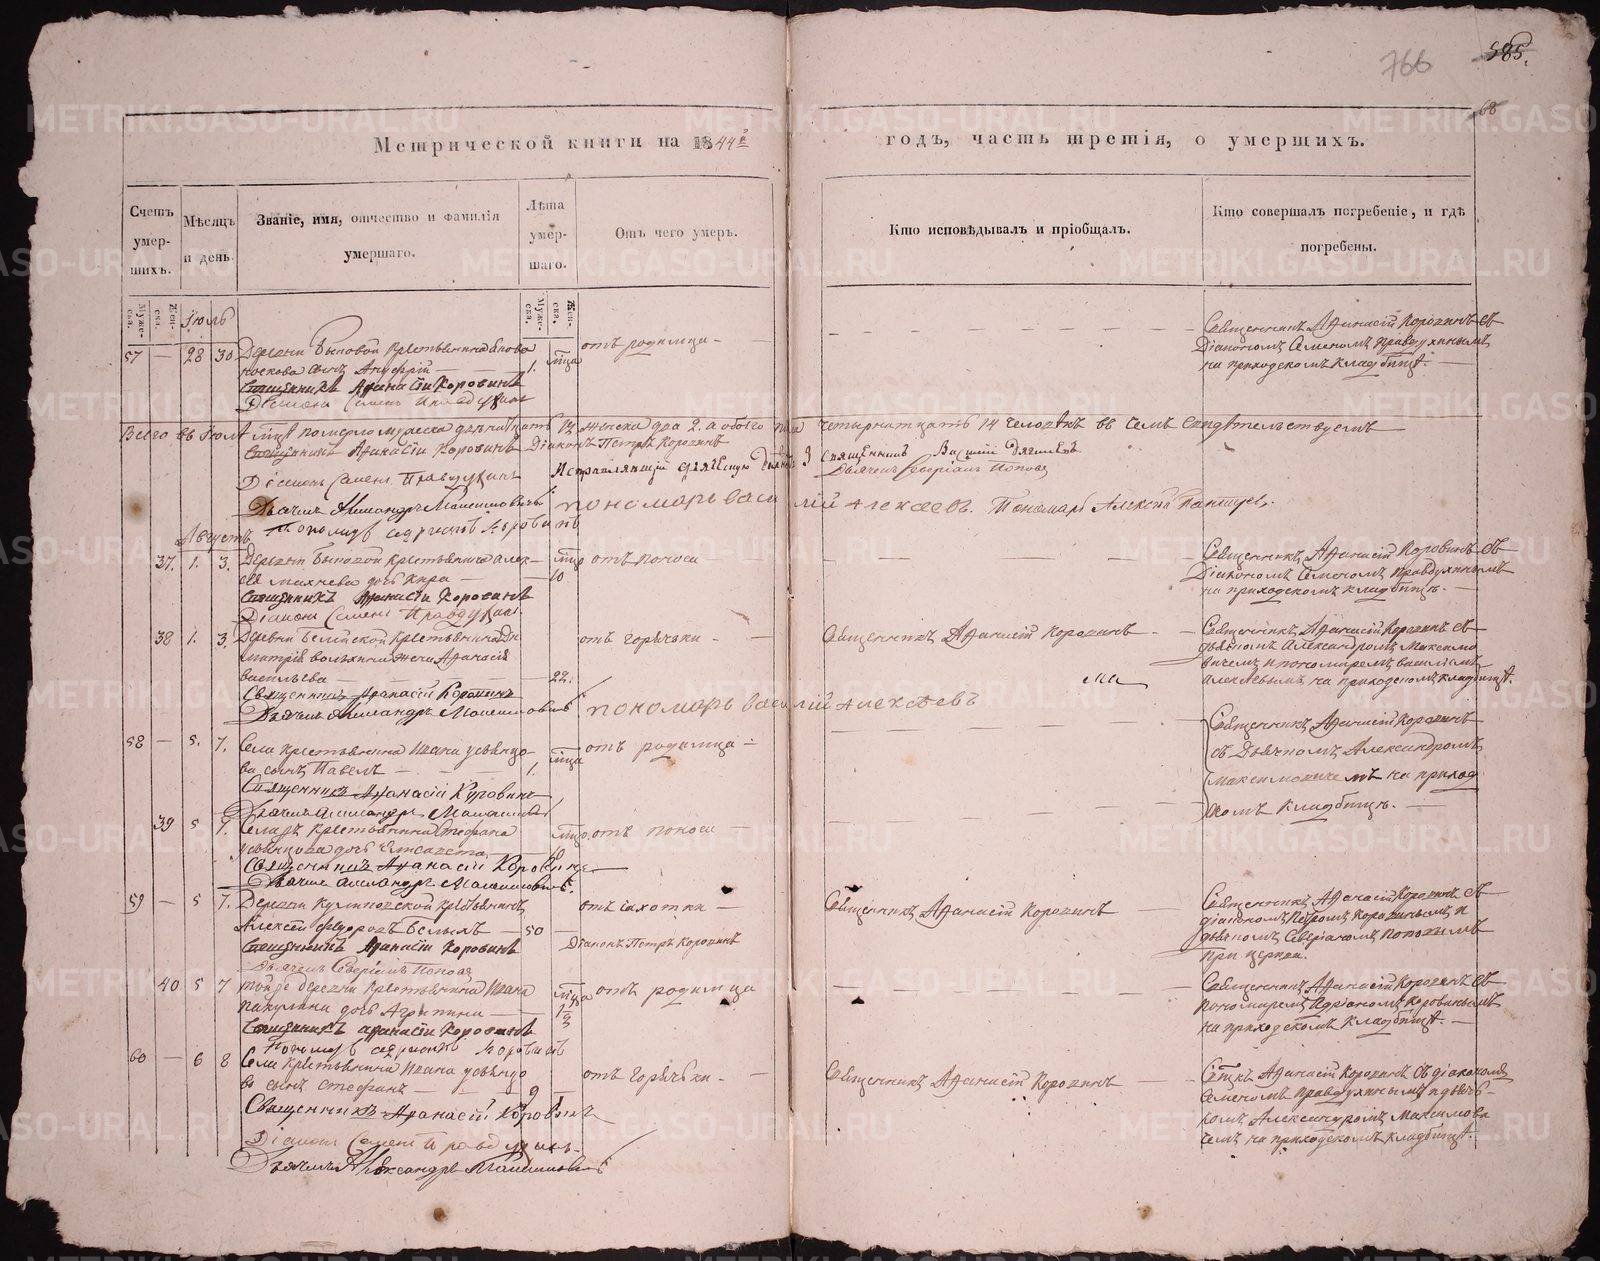 766
585.
68
Метрической книги на 1844й
годъ, часть третія, о умершихъ.
Счетъ умер-шихъ.
Мѣсяцъ и день.
Званіе, имя, отчество и фамилія умершаго.
Лѣта умер-шаго.
Отъ чего умеръ.
Кто исповѣдывалъ и пріобщалъ.
Кто совершалъ погребеніе, и гдѣ погребены.
Муже-ска.
Жен-ска.
Муже-ска.
Жен-ска.
Іюль
57 — 28 30 Деревни Быковой крестьянина
сынъ 1. мца
отъ родимца
Священникъ Афанасій Коровинъ съ
Діакономъ Семеномъ Правдухинымъ
на приходскомъ кладбищѣ.
Священникъ Афанасій Коровинъ
Діаконъ Семенъ Правдухинъ
Всего въ Іюлѣ мцѣ померло мужеска двенатцать 12, женска два 2. а обоего пола четырнатцать 14 человѣкъ въ семъ свидѣтельствуемъ
Священникъ Афанасій Коровинъ Діаконъ Петръ Коровинъ
Священникъ Василій
Діаконъ Семенъ Правдухинъ
Исправляющій
Дьячекъ Северіанъ Поповъ
Дьячекъ Александръ Максимовичевъ пономарь Василій Алексеевъ. Пономарь Алексѣй
Пономарь Адріанъ Коровинъ
Августъ
37. 1. 3. Деревни Быковой крестьянина Алек-
дочь Кира
мца 10
отъ поноса
Священникъ Афанасій Коровинъ съ
Діакономъ Семеномъ Правдухинымъ
на приходскомъ кладбищѣ.
Священникъ Афанасій Коровинъ
Діаконъ Семенъ Правдухинъ
38 1. 3. Деревни крестьянина Ди-
митрія жена Афанасія
Васильева 22.
отъ горячьки
Священникъ Афанасій Коровинъ
Священникъ Афанасій Коровинъ съ
дьячкомъ Александромъ Максимо
вичемъ и пономаремъ Василіемъ
Алексѣевымъ на приходскомъ кладбищѣ.
Священникъ Афанасій Коровинъ
Дьячекъ Александръ Максимовичевъ пономарь Василій Алексѣевъ
58 — 5. 7. Села крестьянина Ивана Усьянцо-
ва сынъ Павелъ 1. мца
отъ родимца
Священникъ Афанасій Коровинъ
съ Дьячкомъ Александромъ
Максимовичемъ на приход
скомъ кладбищѣ.
Священникъ Афанасій Коровинъ
Дьячекъ Александръ Максимовичевъ
39 5 7. Села крестьянина Стефана
Усьянцова дочь Елисавета
отъ поноса
Священникъ Афанасій Коровинъ
Дьячекъ Александръ Максимовичевъ.
59 — 5 7. Деревни Куликовской крестьянинъ
Алексѣй Федоровъ Бѣлыхъ 50
отъ чахотки
Священникъ Афанасій Коровинъ
Священникъ Афанасій Коровинъ съ
діакономъ Петромъ Коровинымъ и
дьячкомъ Северіаномъ Поповымъ
при церкви.
Священникъ Афанасій Коровинъ
Діаконъ Петръ Коровинъ
Дьячекъ Северіанъ Поповъ
40 5 7 Той же деревни крестьянина Ивана
Пакулина дочь Агрипина
отъ родимца
Священникъ Афанасій Коровинъ съ
пономаремъ Адріаномъ Коровинымъ
на приходскомъ кладбищѣ.
Священникъ Афанасій Коровинъ
Пономарь Адріанъ Коровинъ
60 — 6 8 Села крестьянина Ивана Усьянцо
ва сынъ Стефанъ 9
отъ горячьки
Священникъ Афанасій Коровинъ
Афанасій Коровинъ съ діакономъ
Семеномъ Правдухинымъ и дьяч-
комъ Александромъ Максимови
чемъ на приходскомъ кладбищѣ.
Священникъ Афанасій Коровинъ
Діаконъ Семенъ Правдухинъ.
Дьячекъ Александръ Максимовичевъ
METRIKI.GASO-URAL.RU